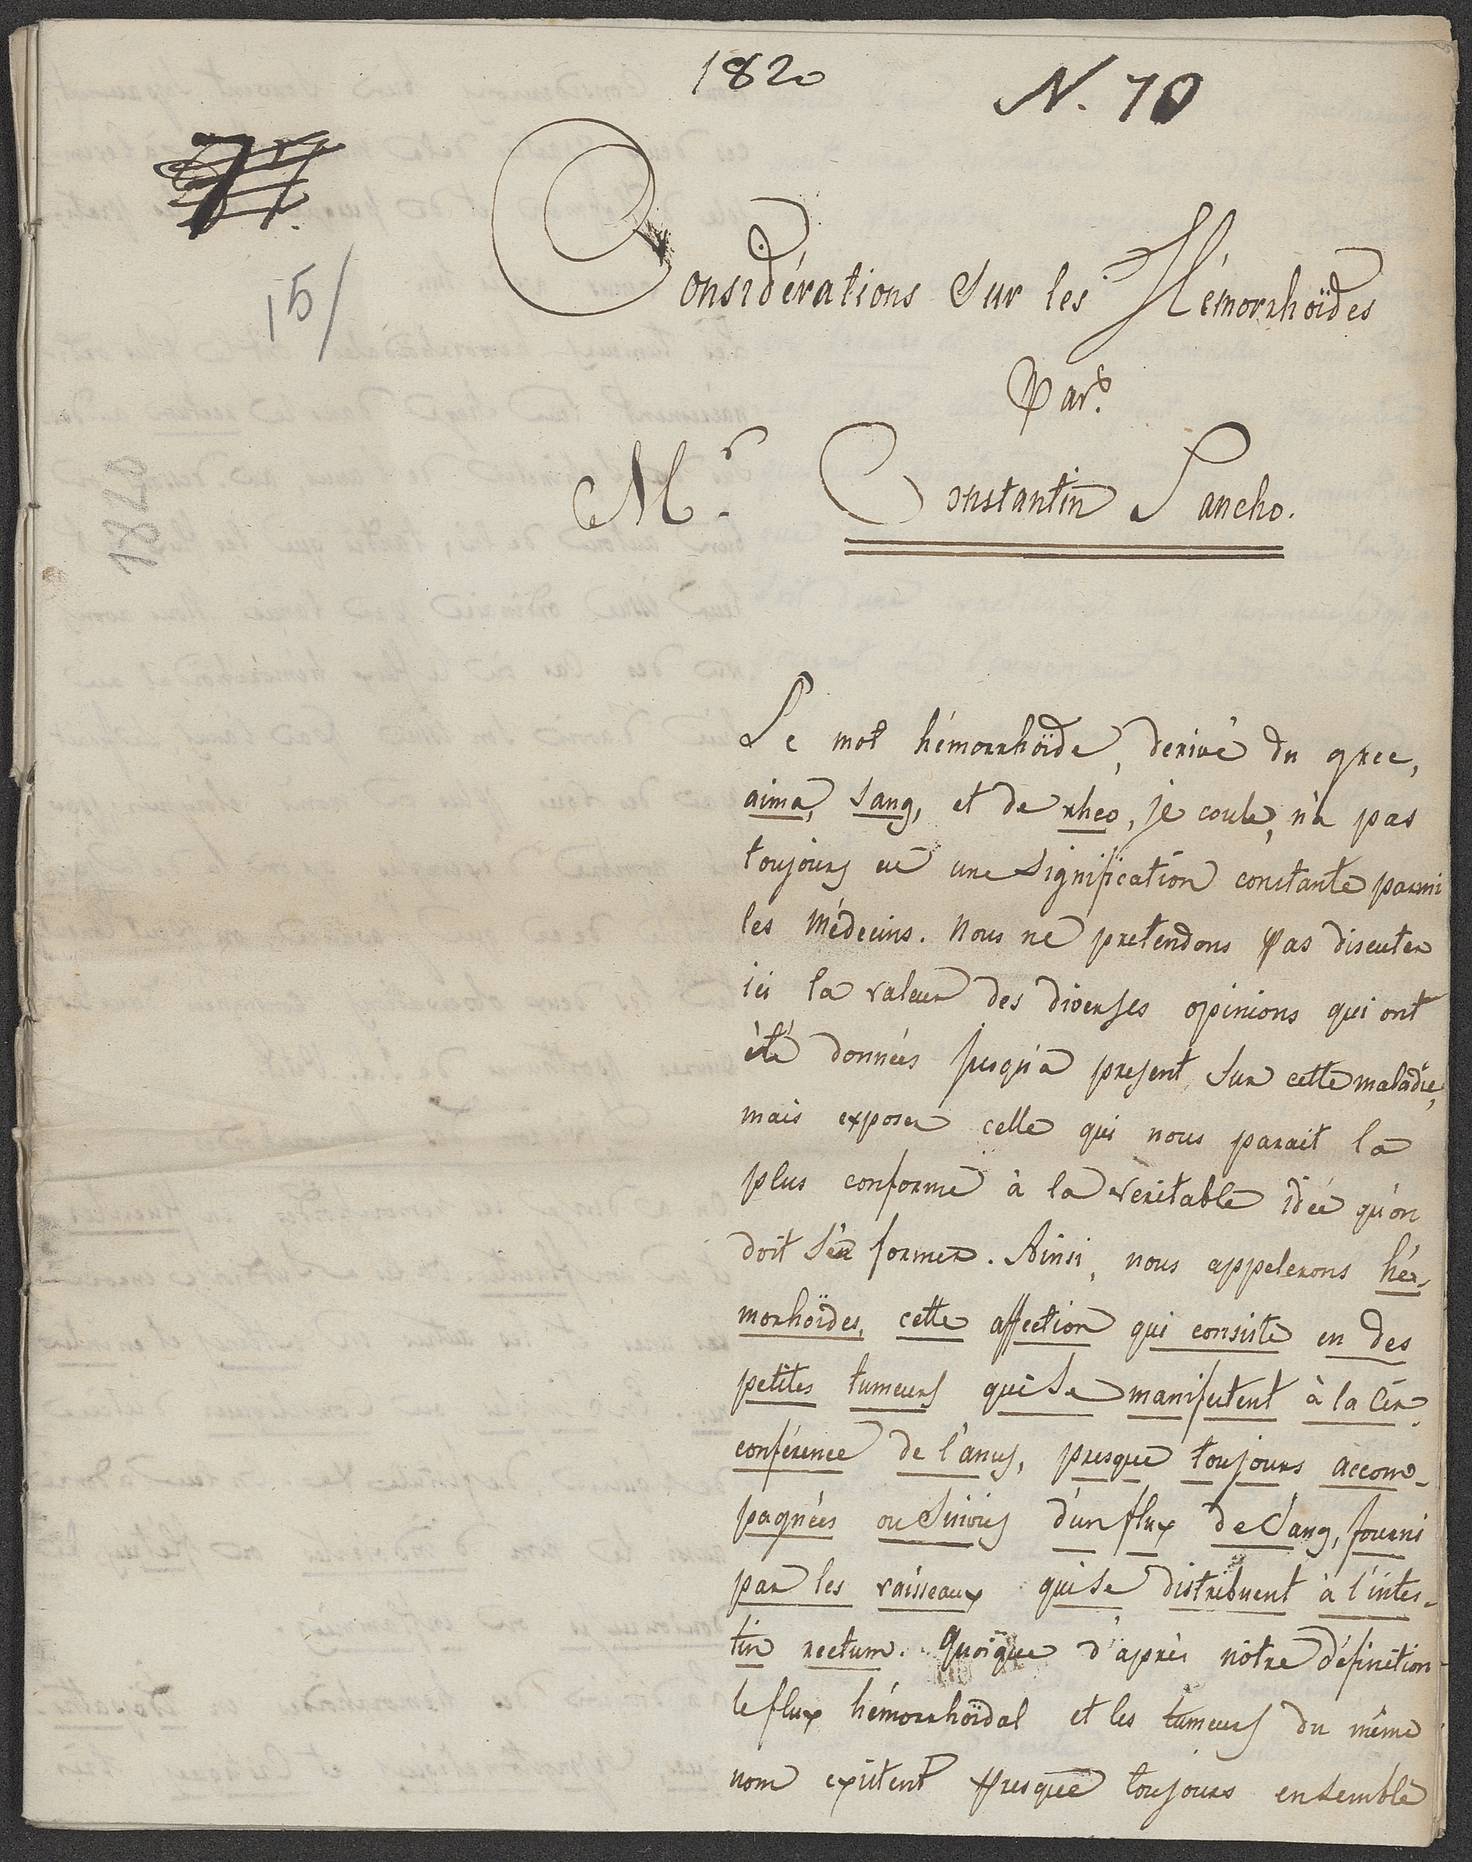 1820
N. 70
15/
Considérations Sur les Hémorrhoïdes
Par.
Mr. Constantin Sancho.
1820
Le mot hémorrhoïde, derivé du grec,
aima, Sang, et de rheo, je coule, n'a pas
toujours eu une Signification constante parmi
les Médecins. Nous ne pretendons pas discuter
ici la valeur des diverses opinions qui ont
été données jusqu'à present Sur cette maladie,
mais exposer celle qui nous parait la
plus conforme à la veritable idée qu'on
doit S'en former. Ainsi, nous appelerons hé-
morhoïdes, cette affection qui consiste en des
petites tumeurs qui Se manifestent à la Cir-
conférence de l'anus, presque toujours accom-
pagnées ou Suivies d'un flux de Sang, fourni
par les vaisseaux qui Se distribuent à l'intes-
tin rectum. Quoique d'après nôtre définition
le flux hémorrhoïdal et les tumeurs du même
nom existent presque toujours ensemble